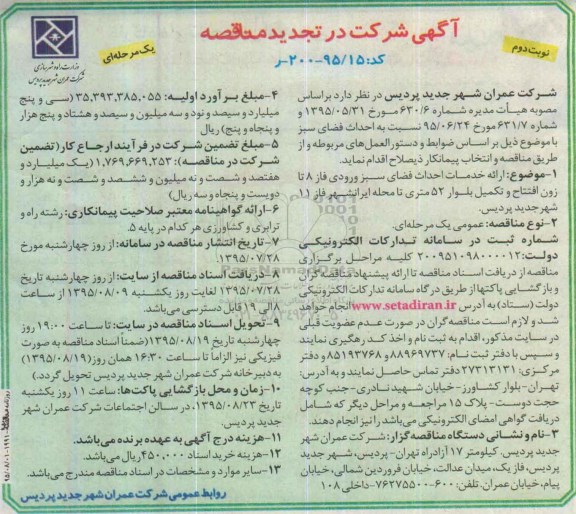 آگهی شرکت در تجدید مناقصه
نوبت دوم
یک مرحله‌ای
کد: ۹۵/۱۵-۲۰۰-ر
وزارت راه و شهرسازی
شرکت عمران شهر جدید پردیس
شرکت عمران شهر جدید پردیس در نظر دارد براساس
مصوبه هیأت مدیره شماره ۶۳۰/۶ مورخ ۱۳۹۵/۰۵/۳۱ و
شماره ۶۳۱/۷ مورخ ۹۵/۰۶/۲۴ نسبت به احداث فضای سبز
با موضوع ذیل بر اساس ضوابط و دستورالعمل‌های مربوطه و از
طریق مناقصه و انتخاب پیمانکار ذیصلاح اقدام نماید.
۱-موضوع: ارائه خدمات احداث فضای سبز ورودی فاز ۸ تا
زون افتتاح و تکمیل بلوار ۵۲ متری تا محله ایرانشهر فاز ۱۱
شهر جدید پردیس.
۲-نوع مناقصه: عمومی یک مرحله‌ای.
شماره ثبت در سامانه تدارکات الکترونیکی
دولت: ۲۰۰۹۵۱۰۹۸۰۰۰۰۱۲ کلیه مراحل برگزاری
مناقصه از دریافت اسناد مناقصه تا ارائه پیشنهاد مناقصه‌گران
و بازگشایی پاکتها از طریق درگاه سامانه تدارکات الکترونیکی
دولت (ستاد) به آدرس www.setadiran.ir انجام خواهد
شد و لازم است مناقصه گران در صورت عدم عضویت قبلی
در سایت مذکور، اقدام به ثبت نام و اخذ کد رهگیری نمایند
و سپس با دفتر ثبت نام: ۸۸۹۶۹۷۳۷ و ۸۵۱۹۳۷۶۸ و دفتر
مرکزی: ۲۷۳۱۳۱۳۱ دفتر تماس حاصل نمایند و به آدرس:
تهران-بلوار کشاورز-خیابان شهید نادری-جنب کوچه
حجت دوست-پلاک ۱۵ مراجعه و مراحل دیگر که شامل
دریافت گواهی امضای الکترونیکی می‌باشد را نیز انجام دهند.
۳-نام و نشانی دستگاه مناقصه گزار: شرکت عمران شهر
جدید پردیس. کیلومتر ۱۷ آزادراه تهران-پردیس، شهر جدید
پردیس، فاز یک، میدان عدالت، خیابان فروردین شمالی، خیابان
پیام، خیابان عمران. تلفن: ۶۰۰-۷۶۲۷۵۵۰۰-داخلی ۱۰۸
۴-مبلغ برآورد اولیه: ۳۵,۳۹۳,۳۸۵,۰۵۵ (سی و پنج
میلیارد و سیصد و نود و سه میلیون و سیصد و هشتاد و پنج هزار
و پنجاه و پنج) ریال
۵-مبلغ تضمین شرکت در فرآیند ارجاع کار (تضمین
شرکت در مناقصه): ۱,۷۶۹,۶۶۹,۲۵۳ (یک میلیارد و
هفتصد و شصت و نه میلیون و ششصد و شصت و نه هزار و
دویست و پنجاه و سه ریال)
۶-ارائه گواهینامه معتبر صلاحیت پیمانکاری: رشته راه و
ترابری و کشاورزی هر کدام در پایه ۵.
۷-تاریخ انتشار مناقصه در سامانه: از روز چهارشنبه مورخ
۱۳۹۵/۰۷/۲۸.
۸-دریافت اسناد مناقصه از سایت: از روز چهارشنبه تاریخ
۱۳۹۵/۰۷/۲۸ لغایت روز یکشنبه ۱۳۹۵/۰۸/۰۹ از ساعت
۸ الی ۱۹ قابل دسترسی می‌باشد.
۹-تحویل اسناد مناقصه در سایت: تا ساعت ۱۹:۰۰ روز
چهارشنبه تاریخ ۱۳۹۵/۰۸/۱۹ (ضمناً اسناد مناقصه به صورت
فیزیکی نیز الزاما تا ساعت ۱۶:۳۰ همان روز (۱۳۹۵/۰۸/۱۹)
به دبیرخانه شرکت عمران شهر جدید پردیس تحویل گردد.)
۱۰-زمان و محل بازگشایی پاکت‌ها: ساعت ۱۱ روز یکشنبه
تاریخ ۱۳۹۵/۰۸/۲۳، در سالن اجتماعات شرکت عمران شهر
جدید پردیس.
۱۱-هزینه درج آگهی به عهده برنده می‌باشد.
۱۲-هزینه خرید اسناد ۴۵۰,۰۰۰ ریال می‌باشد.
۱۳-سایر موارد و مشخصات در اسناد مناقصه مندرج می‌باشد.
روابط عمومی شرکت عمران شهر جدید پردیس